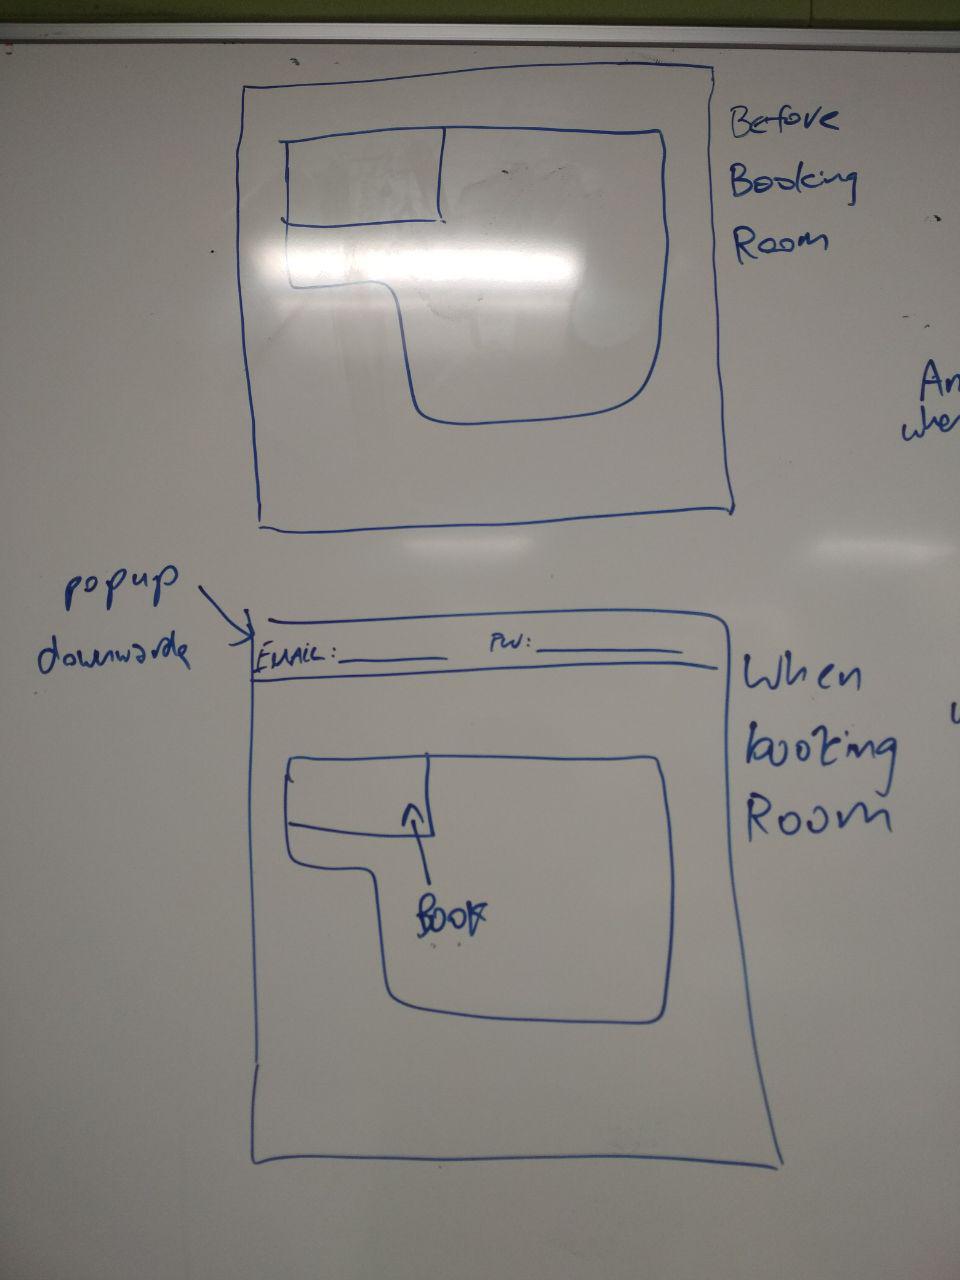 Before
Booking
Room
An
when
popup
downwards
EMAIL: PW:
When
booking
Room
BOOK